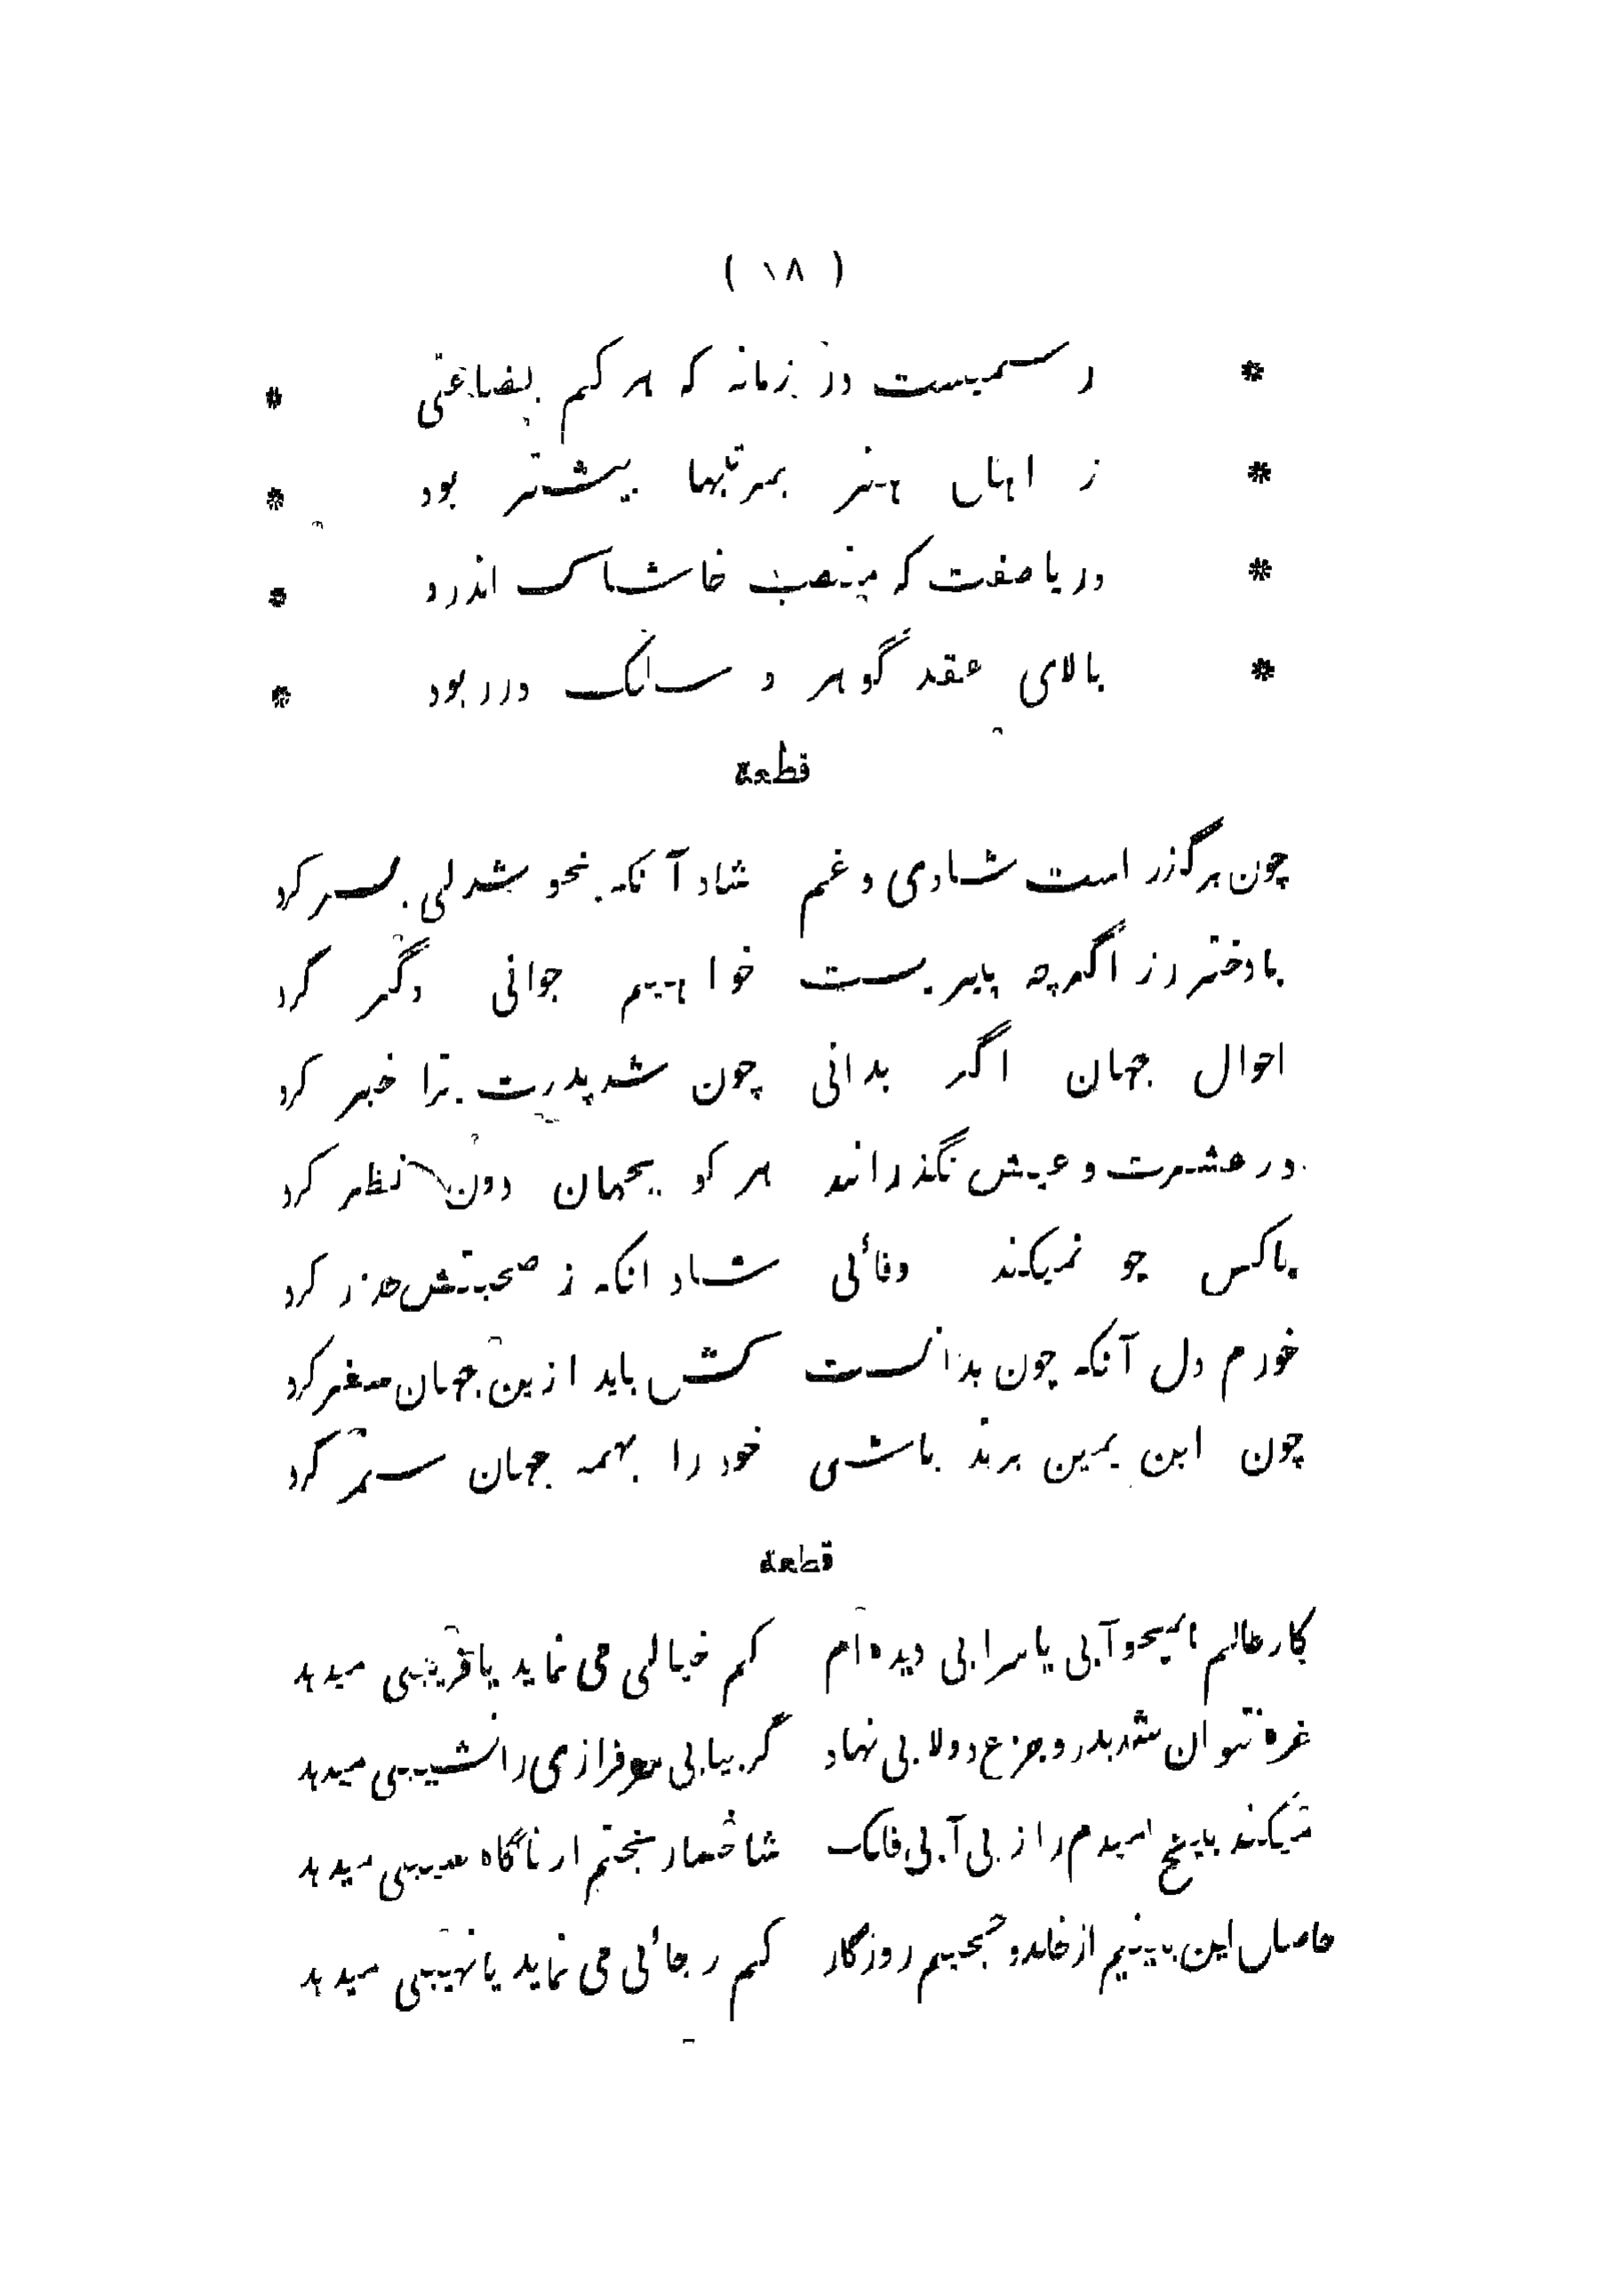 ( ۱۸ )
* رسمیست در زمانه که هر کم بضاعتی *
* ز اهل هنر بمرتبها بیشتر بود *
* دریا صفت که منصب خاشاک اندرو *
* بالای عقد گوهر و سلک درر بود *
قطعة
چون برگذر است شادی و غم شاد آنکه بخوشدلی بسر کرد
با دختر رز اگرچه پیریست خواهیم جوانی دگر کرد
احوال جهان اگر بدانی چون شد پدرت ترا خبر کرد
در عشرت و عیش نگذراند هر کو بجهان دون نظر کرد
باکس چو نمیکند وفائی شاد انکه ز صحبتش حذر کرد
خورم دل آنکه چون بدانست کش باید ازین جهان سفر کرد
چون ابن یمین برند باشی خود را بهمه جهان سمر کرد
قطعة
کار عالم همچو آبی یا سرابی دیده ام کم خیالی می نماید یا فریبی میدهد
غره نتوان شد بدر و جزع دولابی نهاد گر بیابی سرفرازی را نشیبی میدهد
میکند بیخ امیدم را ز بی آبی فلک شاخسار بختم ار ناگاه سیبی میدهد
حاصل این بینیم از خلد و جحیم روزگار کم رجائی می نماید یا نهیبی میدهد